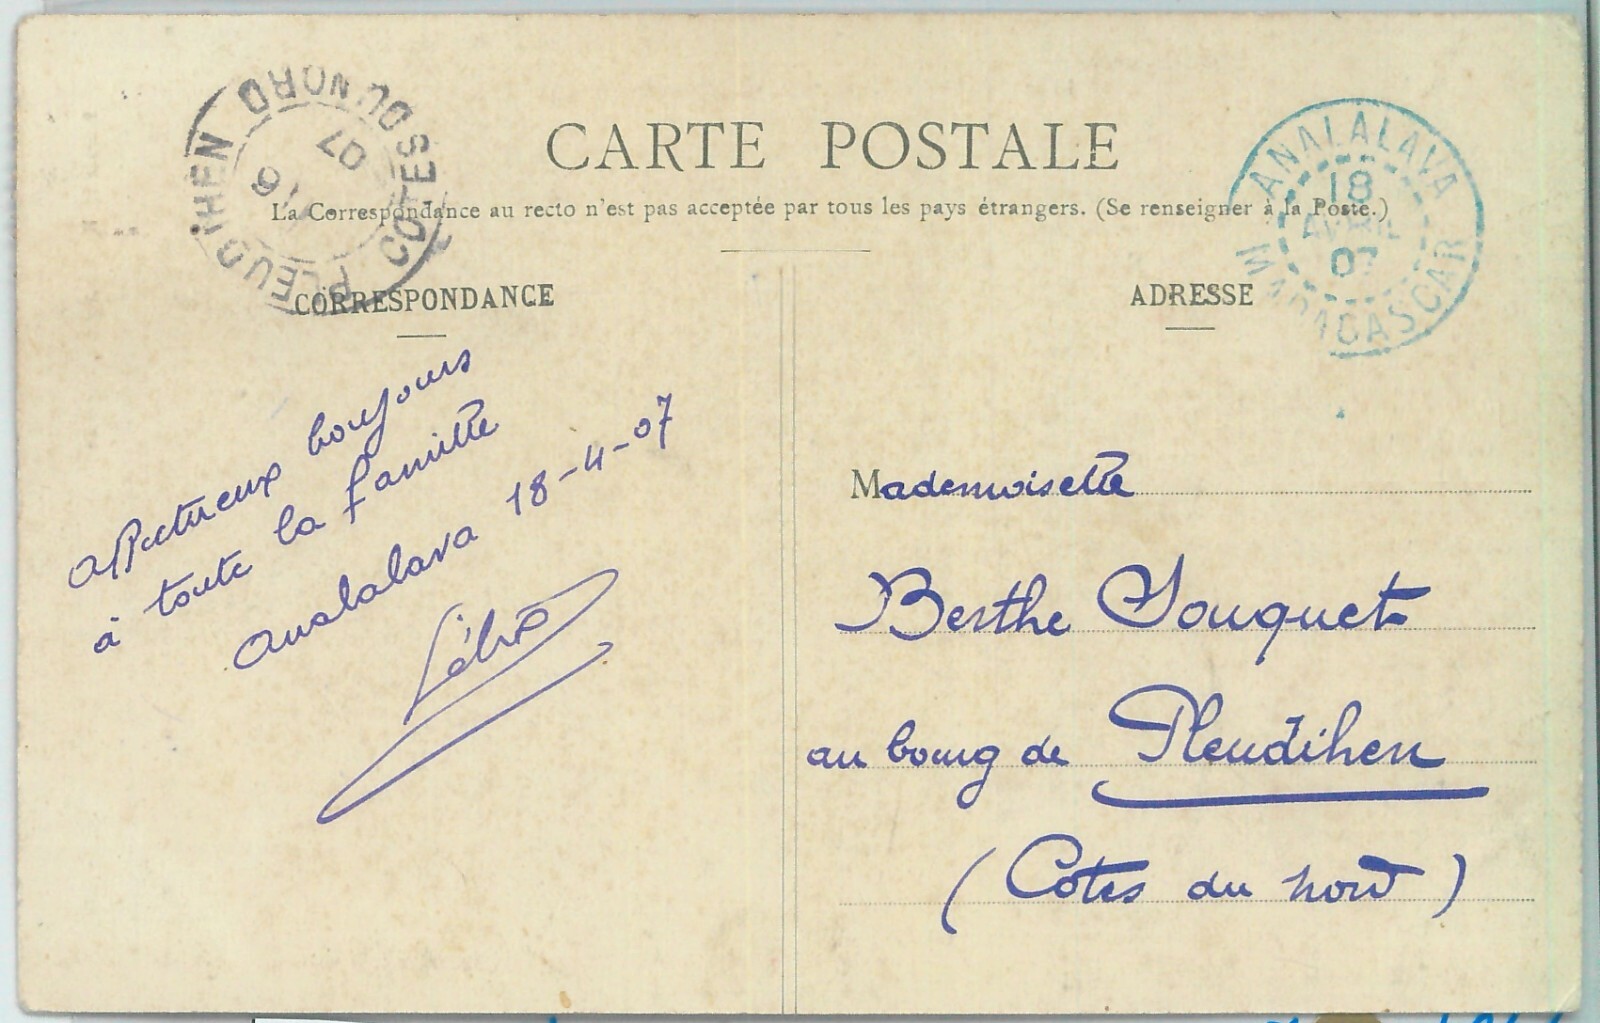 CARTE POSTALE
La Correspondance au recto n'est pas acceptée par tous les pays étrangers. (Se renseigner à la Poste.)
PLEUDIHEN COTES DU NORD
6
07
ANALALAVA
18
AVRIL
07
MADAGASCAR
CORRESPONDANCE
affectueux bonjours
à toute la famille
Analalava 18-4-07
ADRESSE
Mademoiselle
Berthe Jouquet
au bourg de Pleudihen
(Côtes du nord)